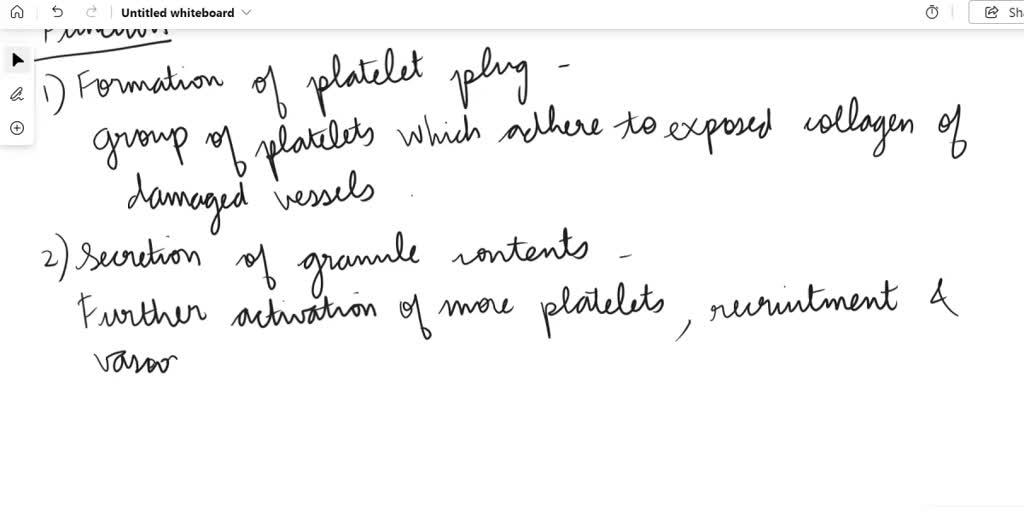 Untitled whiteboard
Sh
Function
1) Formation of platelet plug -
group of platelets which adhere to exposed collagen of
damaged vessels
2) Secretion of granule contents -
Further activation of more platelets, recruitment &
vaso